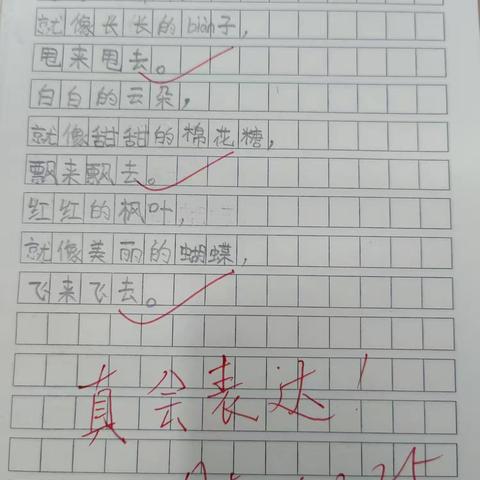 就像长长的biàn子，
甩来甩去。
白白的云朵，
就像甜甜的棉花糖，
飘来飘去。
红红的枫叶，
就像美丽的蝴蝶，
飞来飞去。
真会表达！